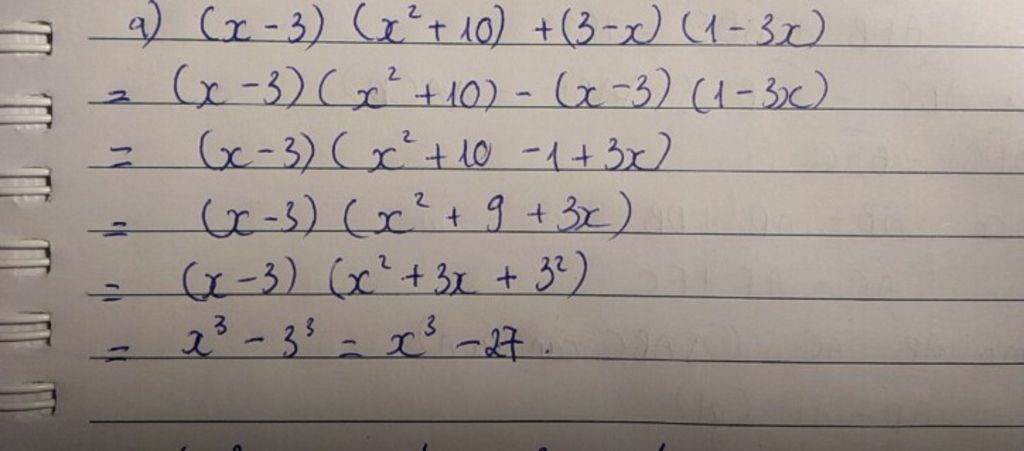 a) (x-3) (x²+10) +(3-x) (1-3x)
= (x-3)(x²+10) - (x-3) (1-3x)
= (x-3)(x²+10 -1+3x)
= (x-3) (x² + 9 + 3x)
= (x-3) (x²+3x + 3²)
= x³ - 3³ = x³ - 27.